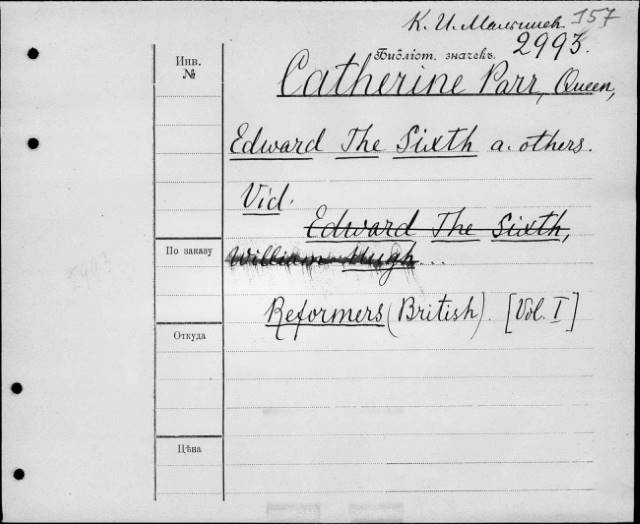 К. И. Малышев 157
Библіот. значекъ. 2993.
Инв. №
Catherine Parr, Queen,
Edward The Sixth a. others.
Vid.
Edward The Sixth,
По заказу
William Hugh...
Reformers (British). [Vol. I]
Откуда
Цѣна